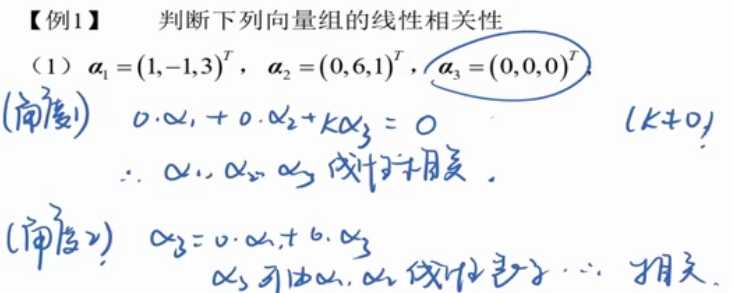 【例1】 判断下列向量组的线性相关性
（1） α₁=(1,−1,3)ᵀ， α₂=(0,6,1)ᵀ，α₃=(0,0,0)ᵀ.
(角度1) 0·α₁+0·α₂+kα₃=0 (k≠0)
∴ α₁, α₂, α₃ 线性相关.
(角度2) α₃=0·α₁+0·α₃
α₃可由α₁, α₂线性表示 ∴ 相关.